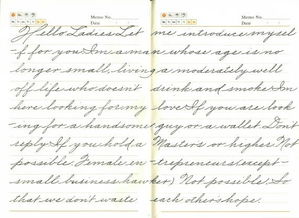 Memo No.
Date
Memo No.
Date
Hello Ladies Let me introduce mysel-
f for you I'm a man whose age is no
longer small, living a moderately well
off life who doesn't drink and smoke I'm
here looking for my love If you are look
ing for a handsome guy or a wallet Don't
reply If you hold a Masters or higher Not
possible Female en-trepreneurs (except
small business hawker) Not possible. So
that we don't waste each others hope.